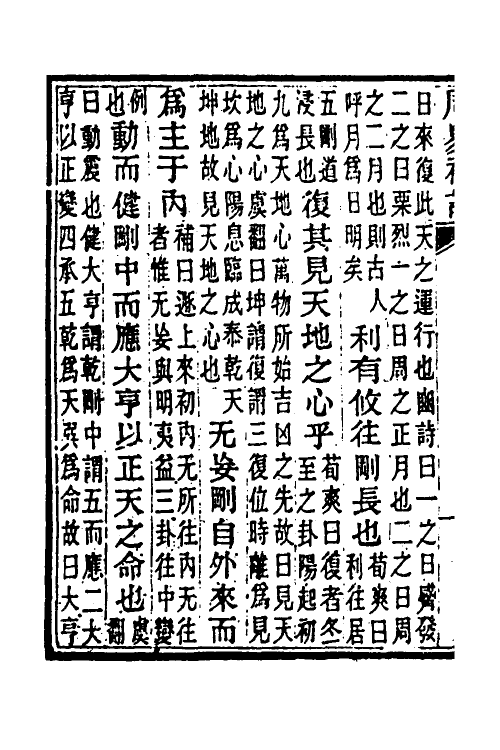 日來復此天之運行也豳詩曰一之日觱發
二之日栗烈一之日周之正月也二之日周
之二月也則古人
呼月為日明矣
利有攸往剛長也
荀爽曰
利往居
五剛道
浸長也
復其見天地之心乎
荀爽曰復者冬
至之卦陽起初
九為天地心萬物所始吉凶之先故曰見天
地之心虞翻曰坤謂復謂三復位時離為見
坎為心陽息臨成泰乾天
坤地故見天地之心也
无妄剛自外來而
為主于內
補曰遂上來初內无所往內无往
者惟无妄與明夷益三卦往中變
例
也
動而健剛中而應大亨以正天之命也
虞
翻
曰動震也健大亨謂乾剛中謂五而應二大
亨以正變四承五乾為天巽為命故曰大亨